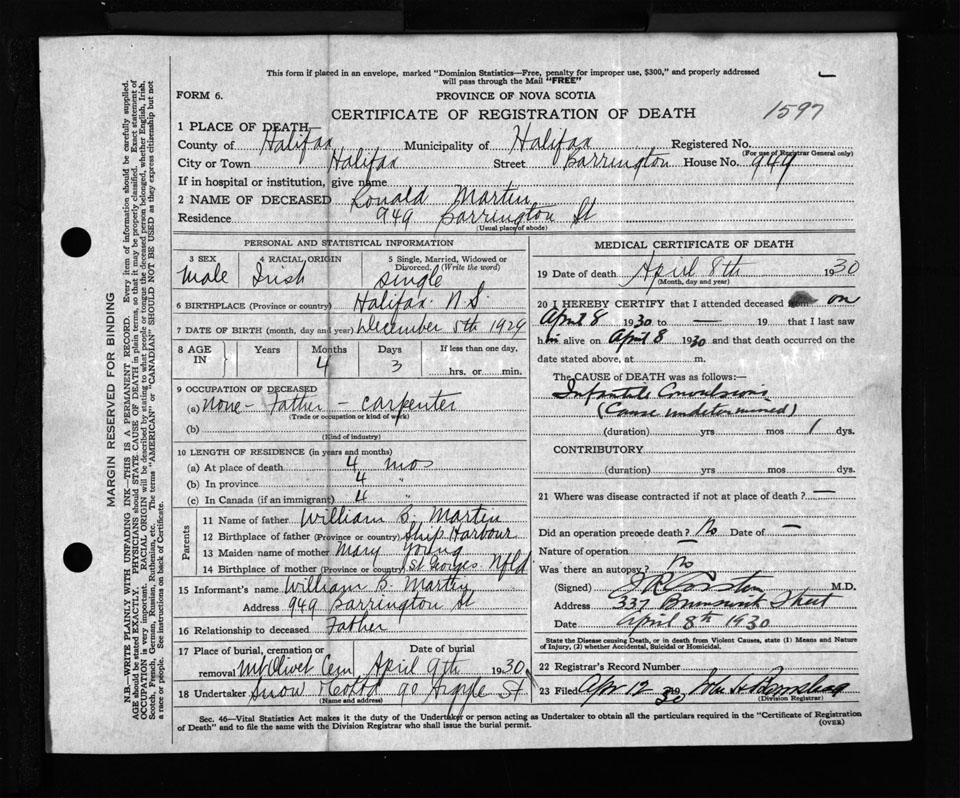 This form if placed in an envelope, marked "Dominion Statistics—Free, penalty for improper use, $300," and properly addressed
will pass through the Mail "FREE"
FORM 6.
PROVINCE OF NOVA SCOTIA
CERTIFICATE OF REGISTRATION OF DEATH
1597
1 PLACE OF DEATH
County of Halifax Municipality of Halifax Registered No.
(For use of Registrar General only)
City or Town Halifax Street Barrington House No. 949
If in hospital or institution, give name
2 NAME OF DECEASED Ronald Martin
Residence 949 Barrington St
(Usual place of abode)
PERSONAL AND STATISTICAL INFORMATION
3 SEX 4 RACIAL ORIGIN 5 Single, Married, Widowed or Divorced. (Write the word)
Male Irish Single
6 BIRTHPLACE (Province or country) Halifax. N.S.
7 DATE OF BIRTH (month, day and year) December 5th 1929
8 AGE IN Years Months Days If less than one day.
4 3 hrs. or min.
9 OCCUPATION OF DECEASED
(a) None - Father - carpenter
(Trade or occupation or kind of work)
(b)
(Kind of industry)
10 LENGTH OF RESIDENCE (in years and months)
(a) At place of death 4 mos
(b) In province 4 "
(c) In Canada (if an immigrant) 4 "
Parents
11 Name of father William B. Martin
12 Birthplace of father (Province or country) Ship Harbour
13 Maiden name of mother Mary Young
14 Birthplace of mother (Province or country) St Georges Nfld
15 Informant's name William B. Martin
Address 949 Barrington St
16 Relationship to deceased Father
17 Place of burial, cremation or removal Date of burial
Mt Olivet Cem April 9th 1930
18 Undertaker Snow & Co Ltd 90 Argyle St.
(Name and address)
MEDICAL CERTIFICATE OF DEATH
19 Date of death April 8th 1930
(Month, day and year)
20 I HEREBY CERTIFY that I attended deceased from on
April 8 1930 to — 19 that I last saw
him alive on April 8 1930 and that death occurred on the
date stated above, at m.
The CAUSE OF DEATH was as follows:—
Infantile Convulsions
(Cause undetermined)
(duration) yrs mos 1 dys.
CONTRIBUTORY
(duration) yrs mos dys.
21 Where was disease contracted if not at place of death? —
Did an operation precede death? No Date of —
Nature of operation —
Was there an autopsy? No
(Signed) M.D.
Address 337 Brunswick Street
Date April 8th 1930
State the Disease causing Death, or in death from Violent Causes, state (1) Means and Nature
of Injury, (2) whether Accidental, Suicidal or Homicidal.
22 Registrar's Record Number
23 Filed Apr 12 1930 John H
(Division Registrar)
Sec. 46—Vital Statistics Act makes it the duty of the Undertaker or person acting as Undertaker to obtain all the particulars required in the "Certificate of Registration
of Death" and to file the same with the Division Registrar who shall issue the burial permit.
(OVER)
MARGIN RESERVED FOR BINDING
N.B.—WRITE PLAINLY WITH UNFADING INK—THIS IS A PERMANENT RECORD. Every item of information should be carefully supplied.
AGE should be stated EXACTLY. PHYSICIANS should STATE CAUSE OF DEATH in plain terms, so that it may be properly classified. Exact statement of
OCCUPATION is very important. RACIAL ORIGIN will be described by stating to what people or tongue the deceased person belonged, whether English, Irish,
Scotch, French, German, Russian, Ruthenian, etc. The terms "AMERICAN" or "CANADIAN" SHOULD NOT BE USED as they express citizenship but not
a race or people. See instructions on back of Certificate.